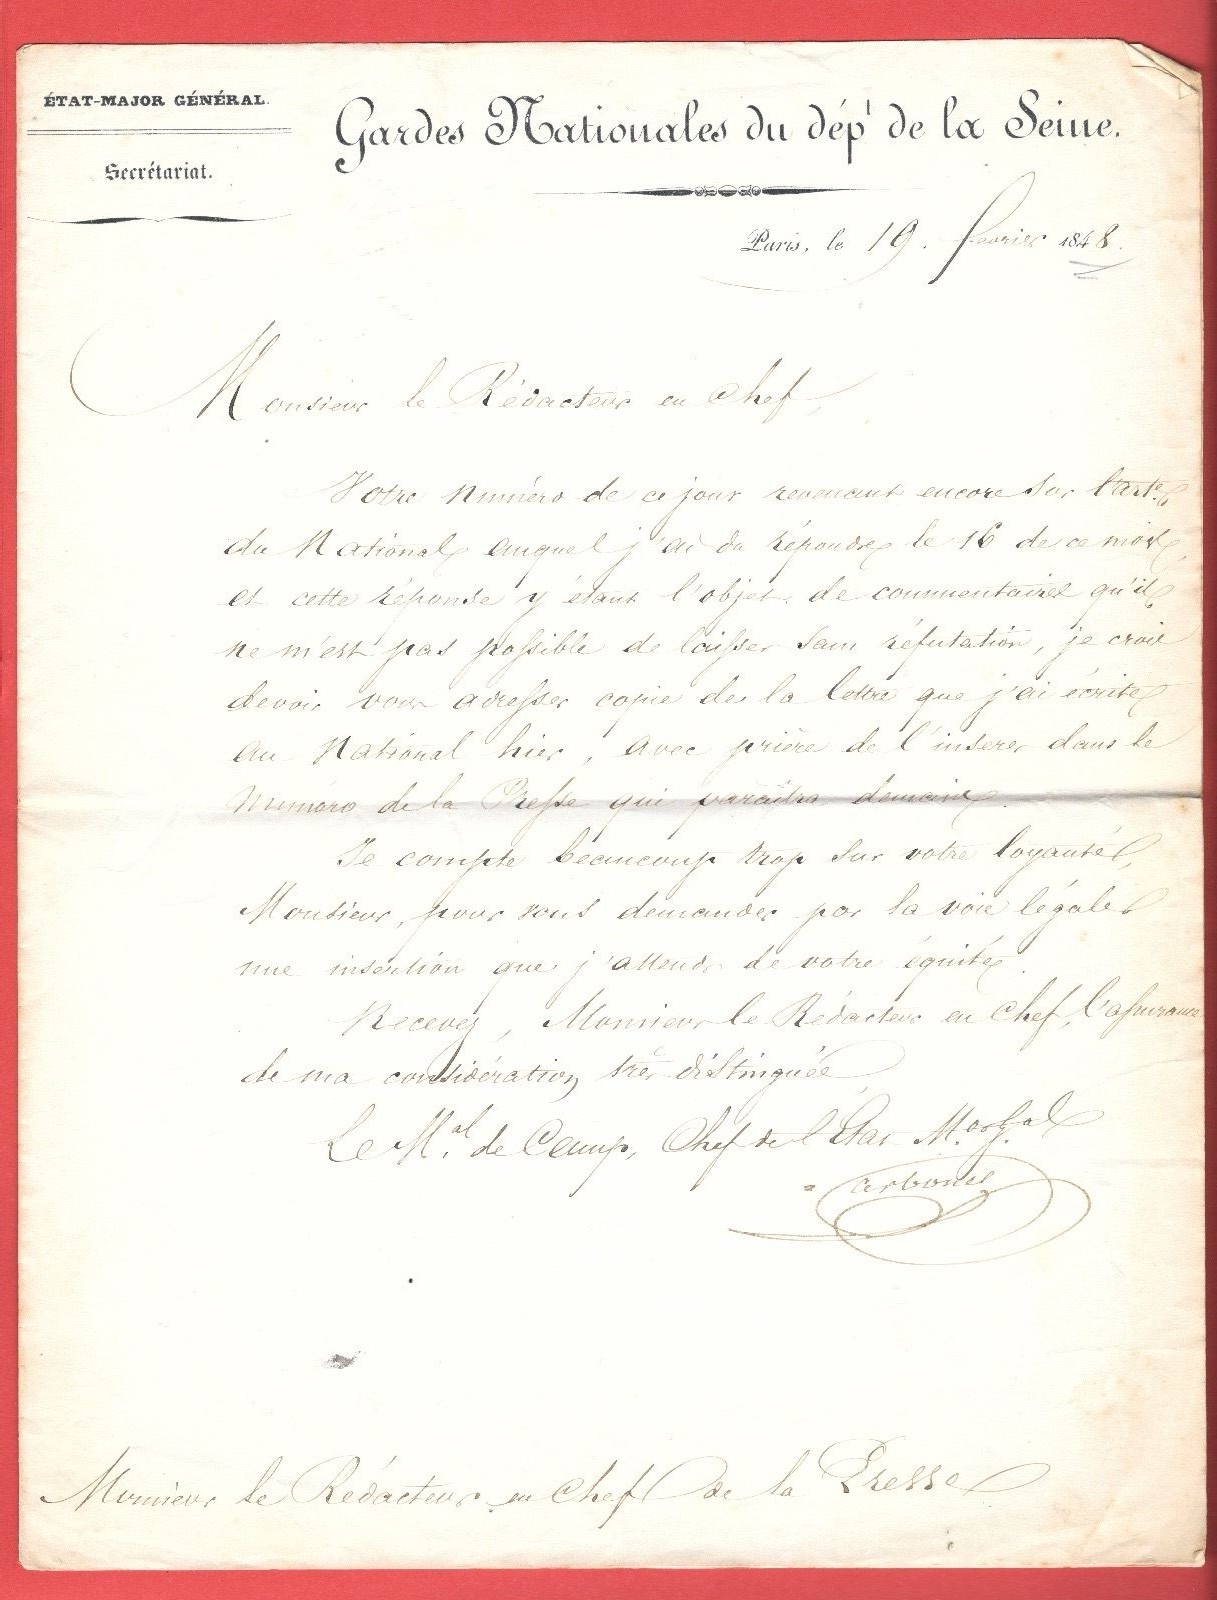 ÉTAT-MAJOR GÉNÉRAL.
Secrétariat.
Gardes Nationales du dépt de la Seine.
Paris, le 19. février 1848.
Monsieur le Rédacteur en Chef,
Votre Numéro de ce jour revenant encore sur l'arte.
du National auquel j'ai du répondre le 16 de ce mois,
et cette réponse y étant l'objet de commentaires qu'il
ne m'est pas possible de laisser sans réfutation, je crois
devoir vous adresser copie de la lettre que j'ai écrite
au National hier, avec prière de l'inserer dans le
Numéro de la Presse qui paraîtra demain.
Je compte beaucoup trop sur votre loyauté,
Monsieur, pour vous demander par la voie légale
une insertion que j'attends de votre équité.
Recevez, Monsieur le Rédacteur en Chef, l'assurance
de ma considération très distinguée
Le Mal. de Camp, Chef de l'Etat Mor gal
Carbonel
Monsieur le Rédacteur en Chef de la Presse